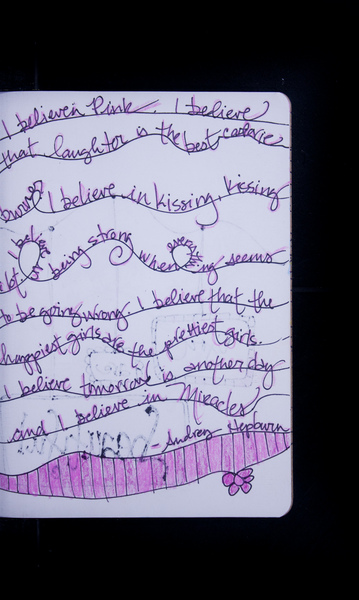 I believe in Pink. I believe
that laughter is the best calorie
burner I believe in kissing, kissing
a lot I believe in being strong when everything seems
to be going wrong. I believe that the
happiest girls are the prettiest girls.
I believe tomorrow is another day
and I believe in Miracles
- Audrey Hepburn